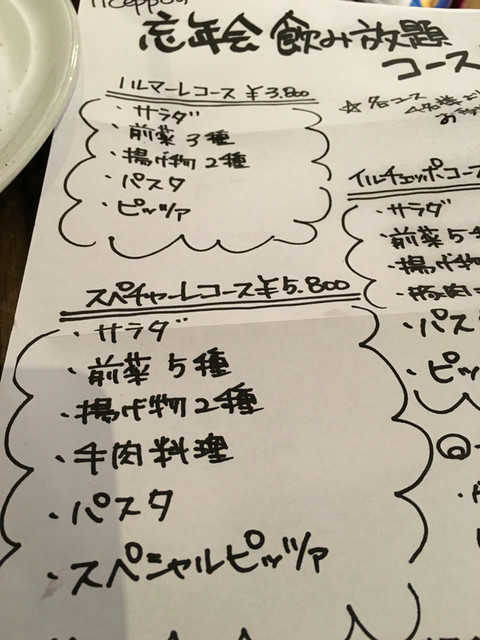 忘年会 飲み放題
コース
ハルマーレコース ¥3.800
・サラダ
・前菜3種
・揚げ物2種
・パスタ
・ピッツァ
☆各コース
イルチェッポコース
・サラダ
・前菜5
・揚げ物
・豚肉
・パス
・ピッ
スペチャーレコース¥5.800
・サラダ
・前菜5種
・揚げ物2種
・牛肉料理
・パスタ
・スペシャルピッツァ